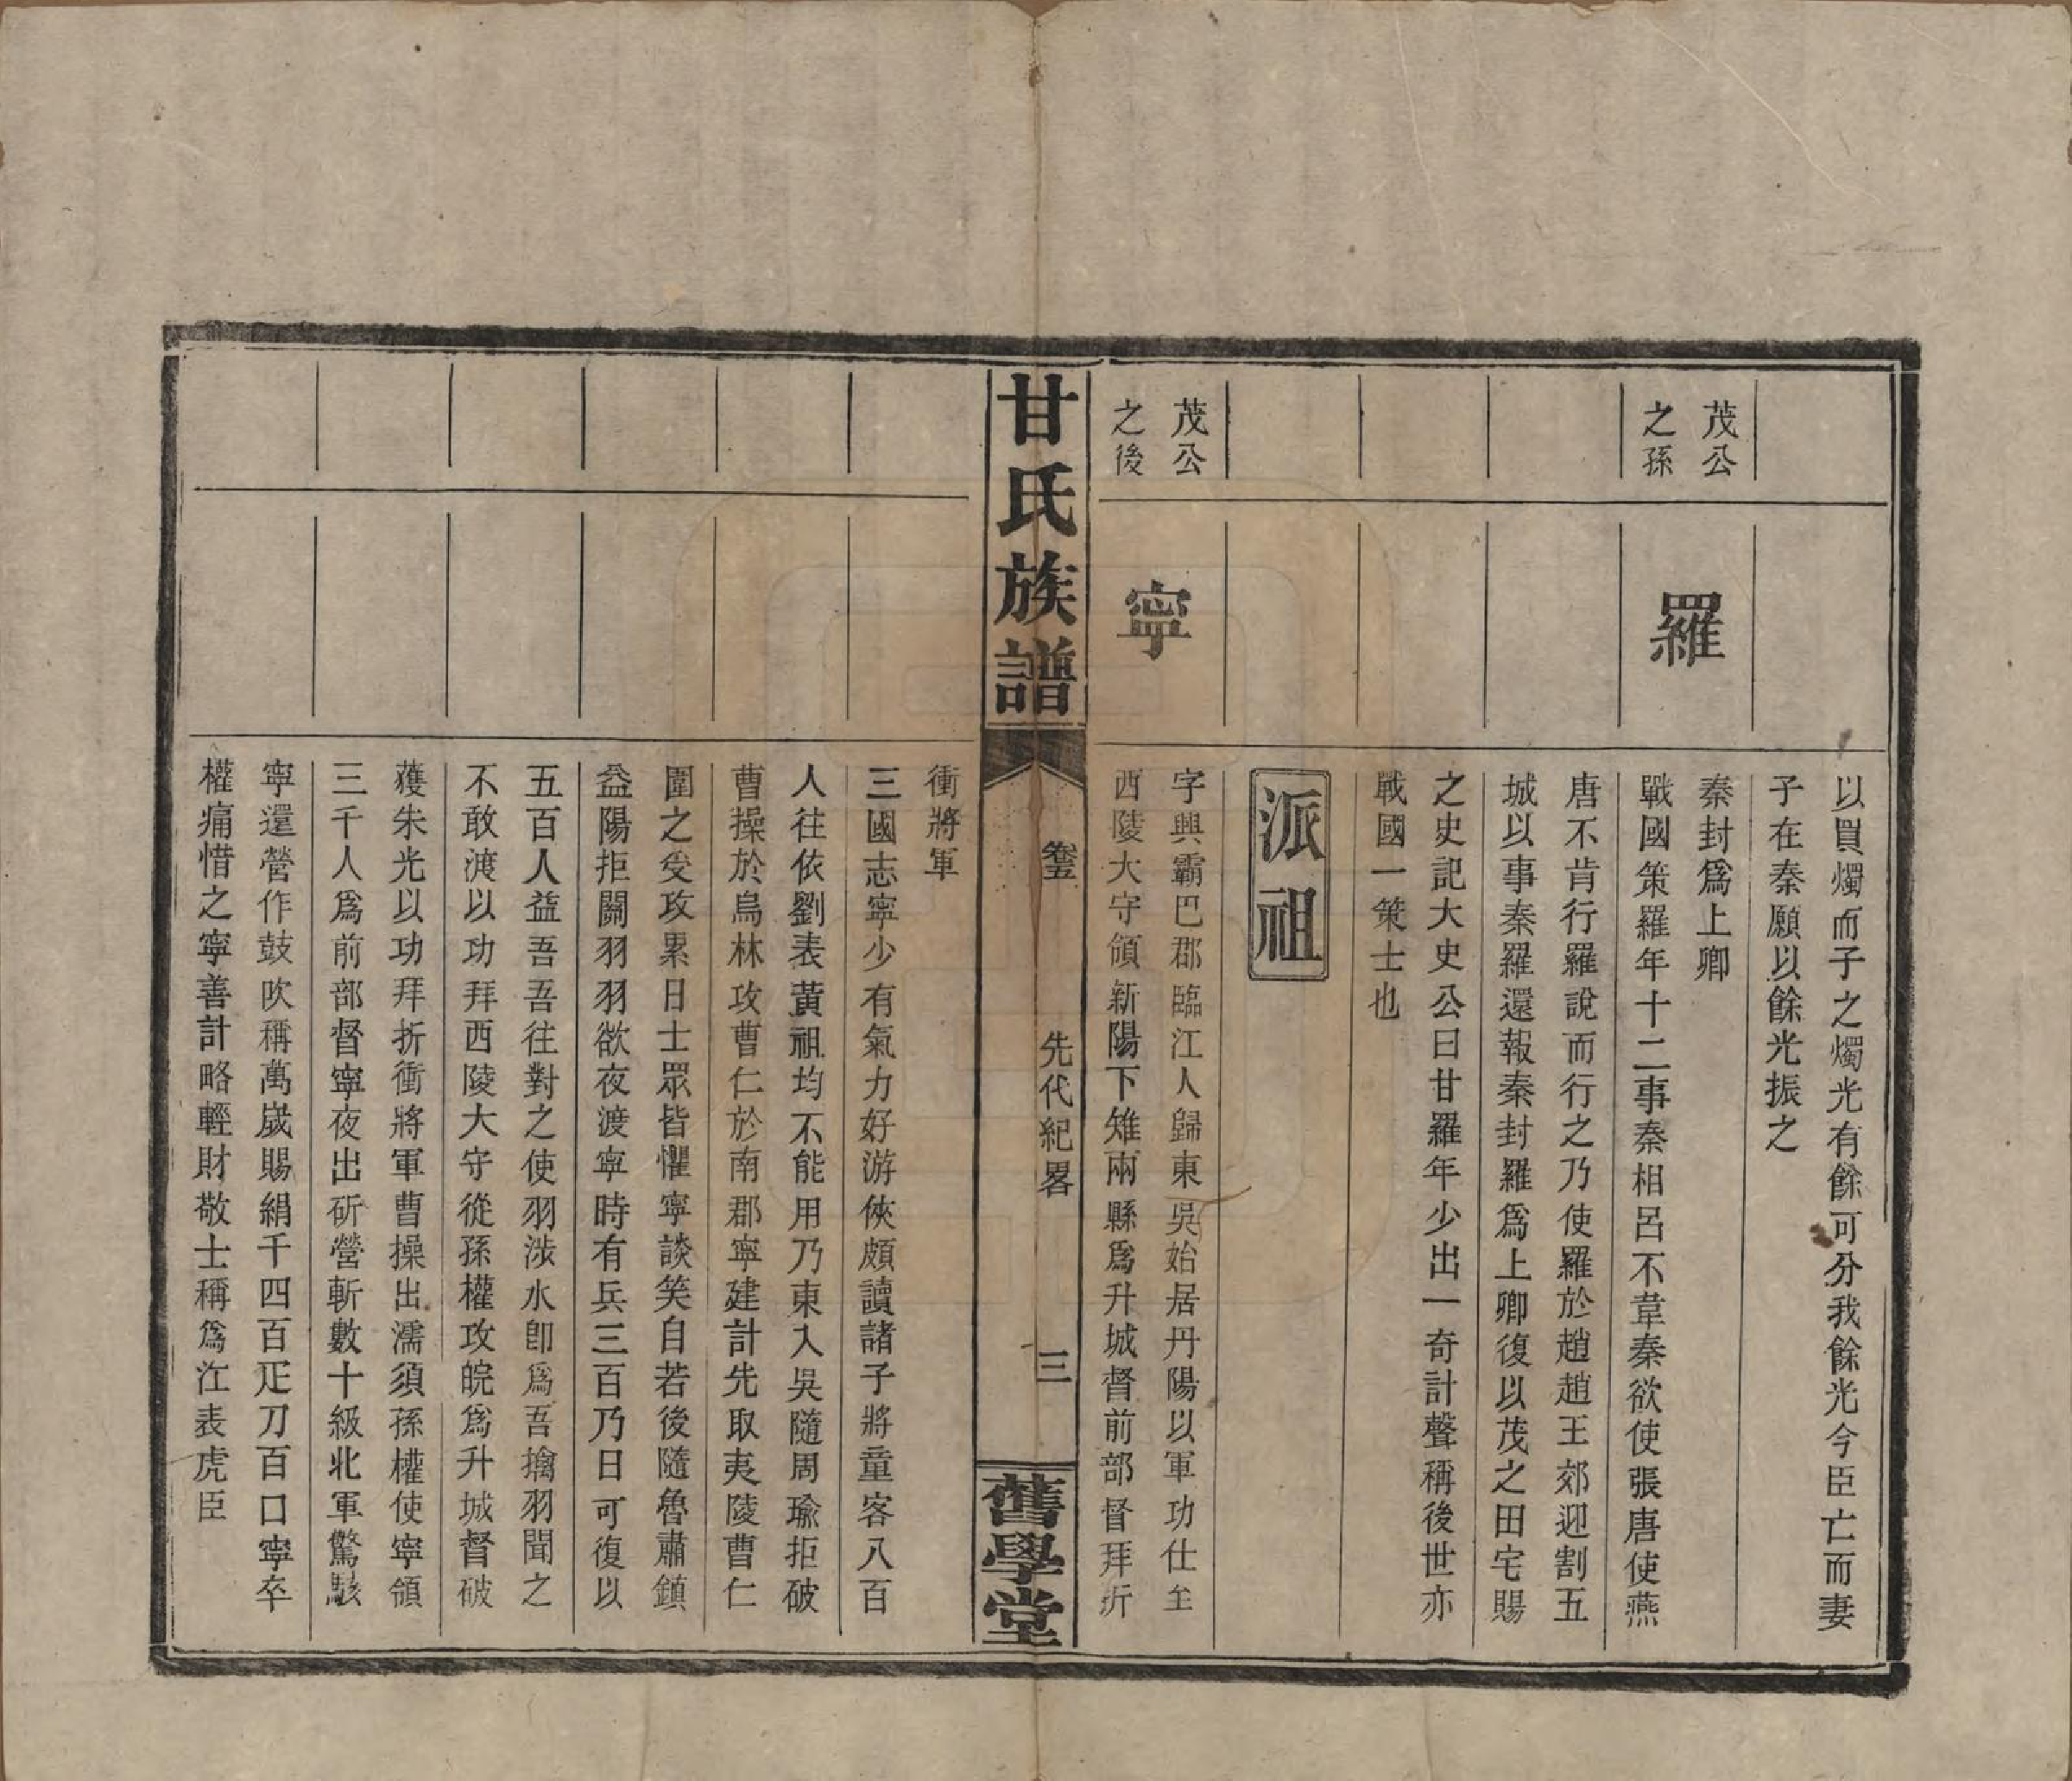 以買燭而子之燭光有餘可分我餘光今臣亡而妻
子在秦願以餘光振之
茂公
之孫
羅
秦封爲上卿
戰國策羅年十二事秦相呂不韋秦欲使張唐使燕
唐不肯行羅說而行之乃使羅於趙趙王郊迎割五
城以事秦羅還報秦封羅爲上卿復以茂之田宅賜
之史記大史公曰甘羅年少出一奇計聲稱後世亦
戰國一策士也
派祖
茂公
之後
寧
字興霸巴郡臨江人歸東吳始居丹陽以軍功仕至
西陵大守領新陽下雉兩縣爲升城督前部督拜折
甘氏族譜
卷五
先代紀畧
三
舊學堂
衝將軍
三國志寧少有氣力好游俠頗讀諸子將童客八百
人往依劉表黃祖均不能用乃東入吳隨周瑜拒破
曹操於烏林攻曹仁於南郡寧建計先取夷陵曹仁
圍之受攻累日士眾皆懼寧談笑自若後隨魯肅鎮
益陽拒關羽羽欲夜渡寧時有兵三百乃曰可復以
五百人益吾吾往對之使羽涉水卽爲吾擒羽聞之
不敢渡以功拜西陵大守從孫權攻皖爲升城督破
獲朱光以功拜折衝將軍曹操出濡須孫權使寧領
三千人爲前部督寧夜出斫營斬數十級北軍驚駭
寧還營作鼓吹稱萬歲賜絹千四百疋刀百口寧卒
權痛惜之寧善計略輕財敬士稱爲江表虎臣